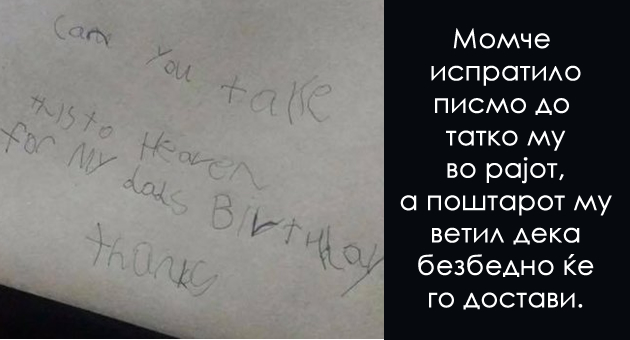 Can you take
this to Heaven
for my dads Birthday
thanks
Момче
испратило
писмо до
татко му
во рајот,
а поштарот му
ветил дека
безбедно ќе
го достави.